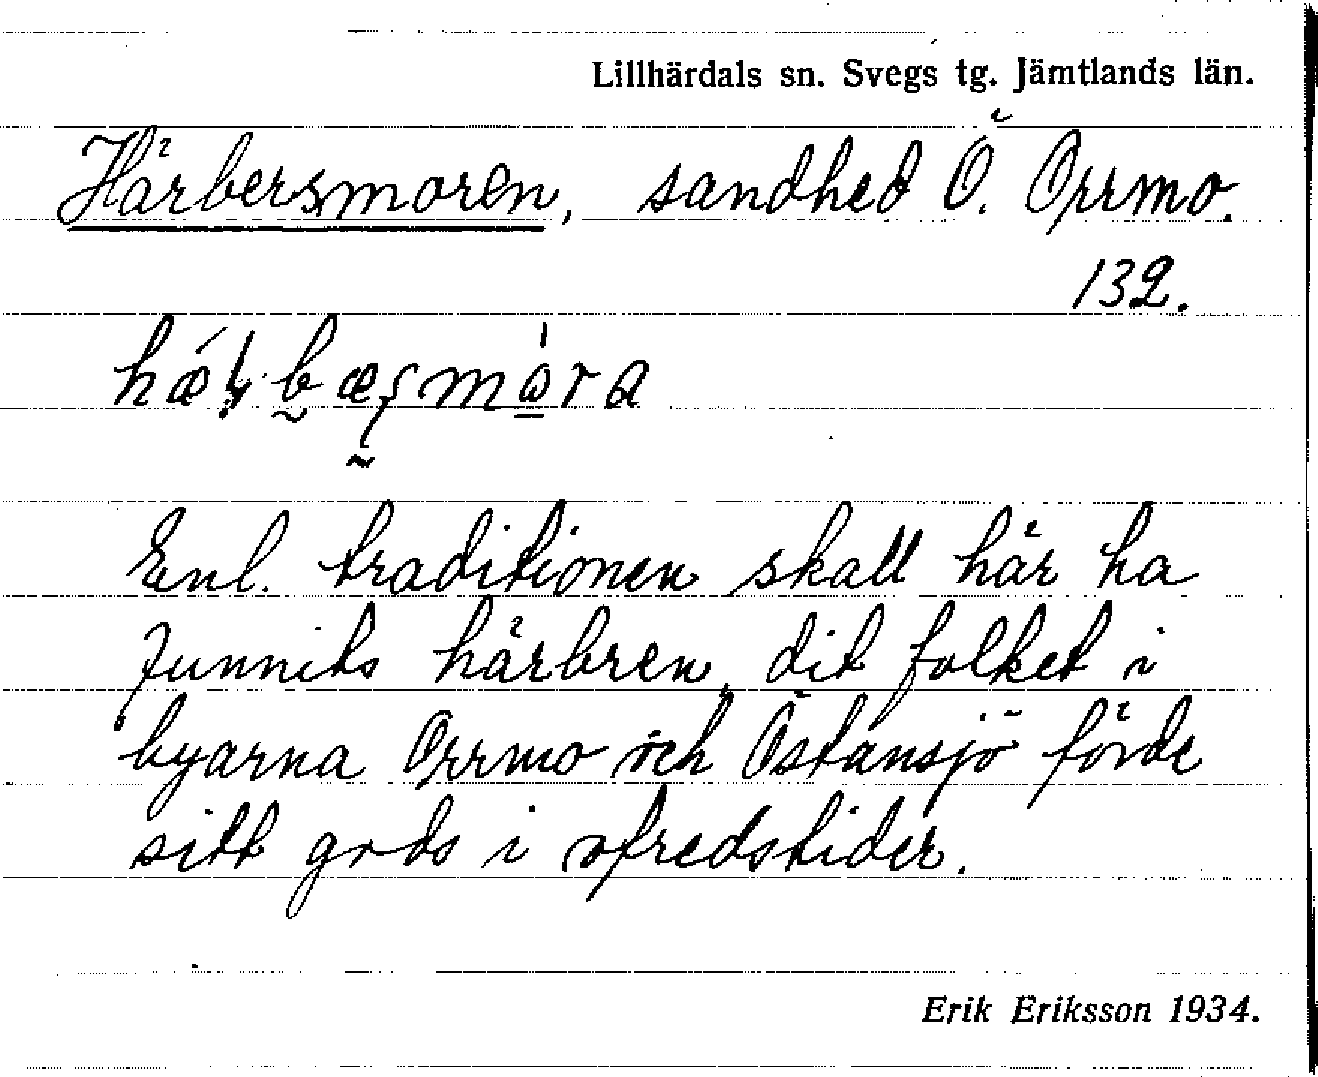 Lillhärdals sn. Svegs tg. Jämtlands län.
Härbersmoren, sandhed Ö. Orrmo.
132.
Enl. traditionen skall här ha
funnits härbren, dit folket i
byarna Orrmo och Östansjö förde
sitt gods i ofredstider.
Erik Eriksson 1934.